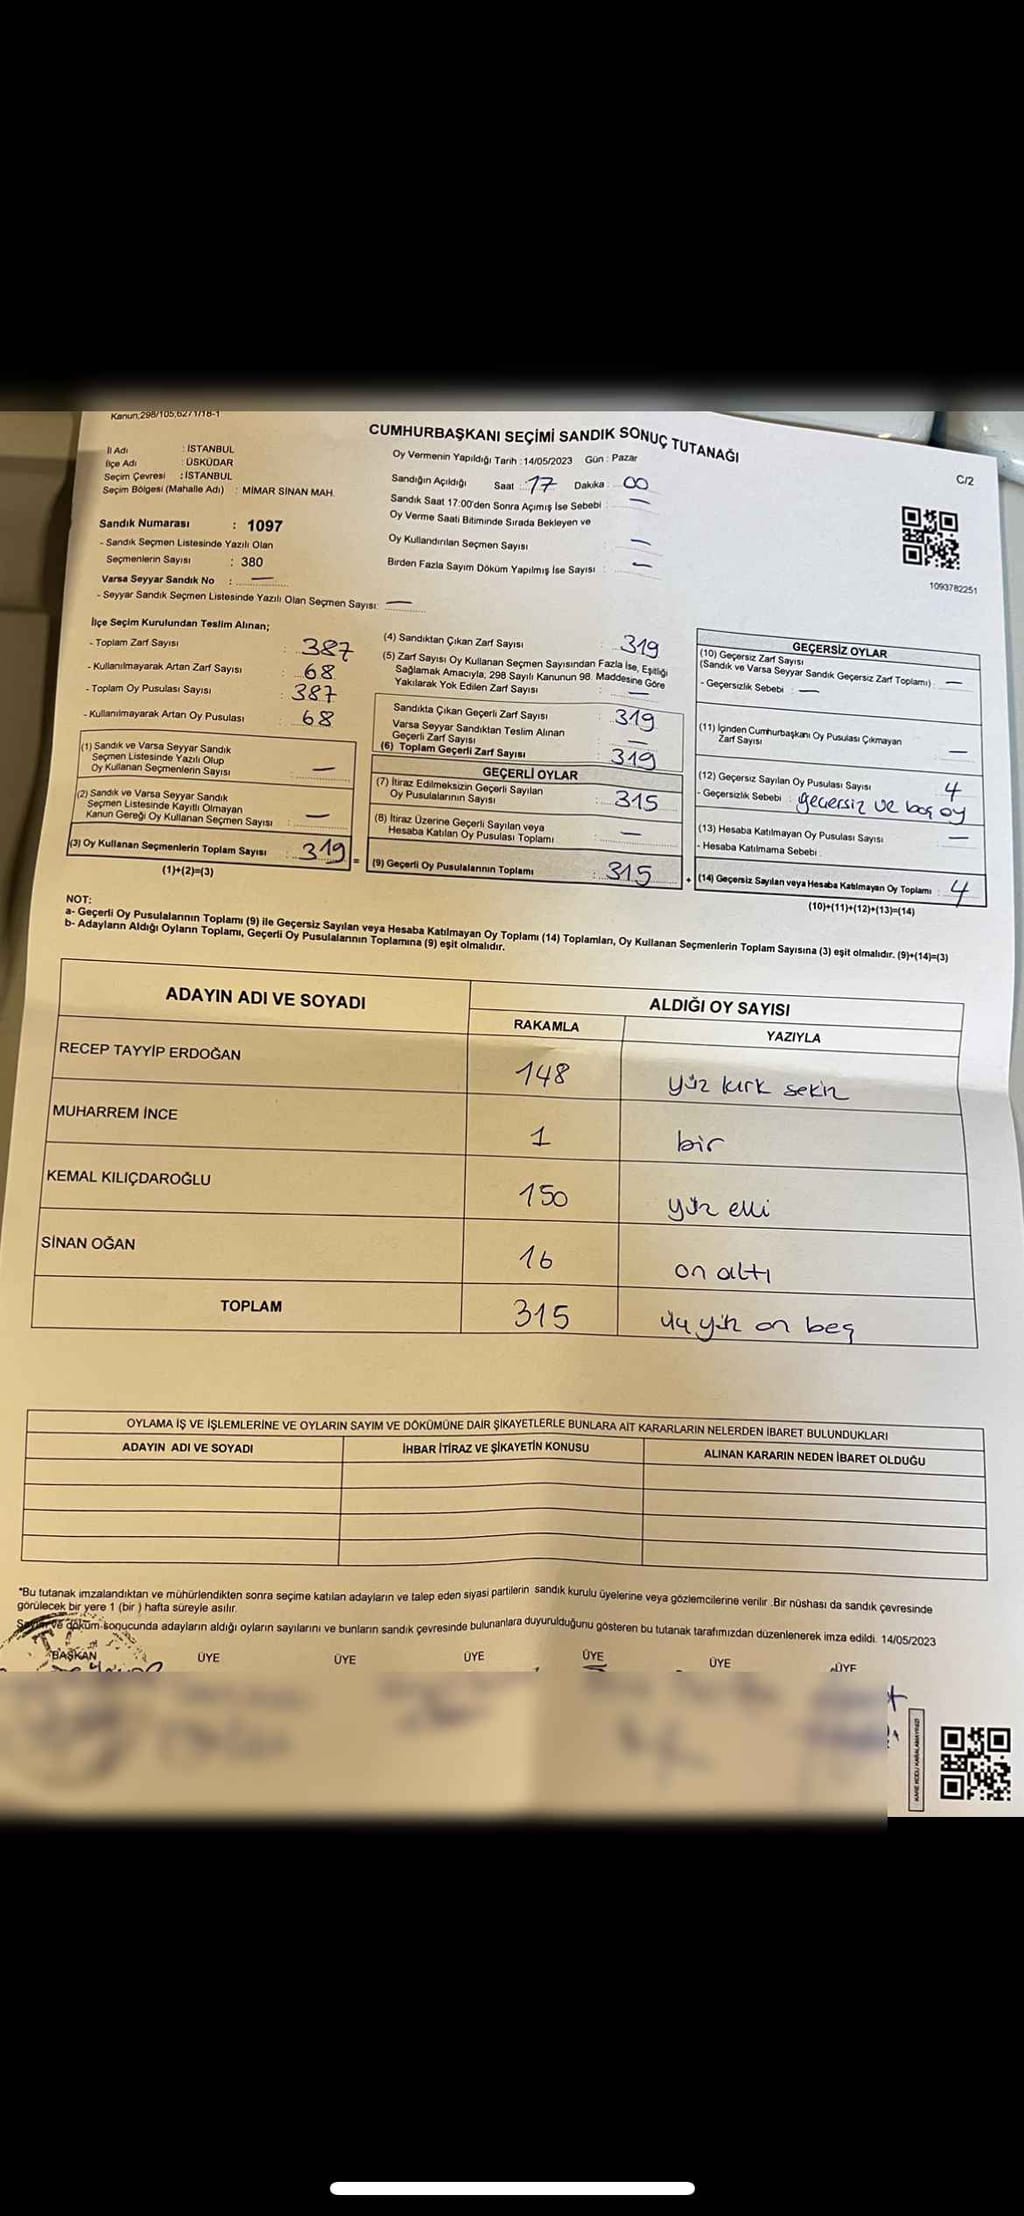 Kanun:298/105,6271/18-1
CUMHURBAŞKANI SEÇİMİ SANDIK SONUÇ TUTANAĞI
C/2
İl Adı : İSTANBUL
İlçe Adı : ÜSKÜDAR
Seçim Çevresi : İSTANBUL
Seçim Bölgesi (Mahalle Adı) : MİMAR SİNAN MAH.
Oy Vermenin Yapıldığı Tarih : 14/05/2023 Gün : Pazar
Sandığın Açıldığı Saat : 17 Dakika : 00
Sandık Saat 17:00'den Sonra Açımış İse Sebebi : —
Oy Verme Saati Bitiminde Sırada Bekleyen ve
Oy Kullandırılan Seçmen Sayısı : —
Birden Fazla Sayım Döküm Yapılmış İse Sayısı : —
1093782251
Sandık Numarası : 1097
- Sandık Seçmen Listesinde Yazılı Olan
Seçmenlerin Sayısı : 380
Varsa Seyyar Sandık No : —
- Seyyar Sandık Seçmen Listesinde Yazılı Olan Seçmen Sayısı: —
İlçe Seçim Kurulundan Teslim Alınan;
- Toplam Zarf Sayısı : 387
- Kullanılmayarak Artan Zarf Sayısı : 68
- Toplam Oy Pusulası Sayısı : 387
- Kullanılmayarak Artan Oy Pusulası : 68
(1) Sandık ve Varsa Seyyar Sandık
Seçmen Listesinde Yazılı Olup
Oy Kullanan Seçmenlerin Sayısı : —
(2) Sandık ve Varsa Seyyar Sandık
Seçmen Listesinde Kayıtlı Olmayan
Kanun Gereği Oy Kullanan Seçmen Sayısı : —
(3) Oy Kullanan Seçmenlerin Toplam Sayısı : 319 =
(1)+(2)=(3)
(4) Sandıktan Çıkan Zarf Sayısı : 319
(5) Zarf Sayısı Oy Kullanan Seçmen Sayısından Fazla İse, Eşitliği
Sağlamak Amacıyla, 298 Sayılı Kanunun 98. Maddesine Göre
Yakılarak Yok Edilen Zarf Sayısı : —
Sandıkta Çıkan Geçerli Zarf Sayısı : 319
Varsa Seyyar Sandıktan Teslim Alınan
Geçerli Zarf Sayısı : —
(6) Toplam Geçerli Zarf Sayısı : 319
GEÇERLİ OYLAR
(7) İtiraz Edilmeksizin Geçerli Sayılan
Oy Pusulalarının Sayısı : 315
(8) İtiraz Üzerine Geçerli Sayılan veya
Hesaba Katılan Oy Pusulası Toplamı : —
(9) Geçerli Oy Pusulalarının Toplamı : 315 +
GEÇERSİZ OYLAR
(10) Geçersiz Zarf Sayısı
(Sandık ve Varsa Seyyar Sandık Geçersiz Zarf Toplamı) : —
- Geçersizlik Sebebi : —
(11) İçinden Cumhurbaşkanı Oy Pusulası Çıkmayan
Zarf Sayısı : —
(12) Geçersiz Sayılan Oy Pusulası Sayısı : 4
- Geçersizlik Sebebi : geçersiz ve boş oy
(13) Hesaba Katılmayan Oy Pusulası Sayısı : —
- Hesaba Katılmama Sebebi :
(14) Geçersiz Sayılan veya Hesaba Katılmayan Oy Toplamı : 4
(10)+(11)+(12)+(13)=(14)
NOT:
a- Geçerli Oy Pusulalarının Toplamı (9) ile Geçersiz Sayılan veya Hesaba Katılmayan Oy Toplamı (14) Toplamları, Oy Kullanan Seçmenlerin Toplam Sayısına (3) eşit olmalıdır. (9)+(14)=(3)
b- Adayların Aldığı Oyların Toplamı, Geçerli Oy Pusulalarının Toplamına (9) eşit olmalıdır.
ADAYIN ADI VE SOYADI
ALDIĞI OY SAYISI
RAKAMLA YAZIYLA
RECEP TAYYİP ERDOĞAN 148 yüz kırk sekiz
MUHARREM İNCE 1 bir
KEMAL KILIÇDAROĞLU 150 yüz elli
SİNAN OĞAN 16 on altı
TOPLAM 315 üç yüz on beş
OYLAMA İŞ VE İŞLEMLERİNE VE OYLARIN SAYIM VE DÖKÜMÜNE DAİR ŞİKAYETLERLE BUNLARA AİT KARARLARIN NELERDEN İBARET BULUNDUKLARI
ADAYIN ADI VE SOYADI İHBAR İTİRAZ VE ŞİKAYETİN KONUSU ALINAN KARARIN NEDEN İBARET OLDUĞU
*Bu tutanak imzalandıktan ve mühürlendikten sonra seçime katılan adayların ve talep eden siyasi partilerin sandık kurulu üyelerine veya gözlemcilerine verilir .Bir nüshası da sandık çevresinde
görülecek bir yere 1 (bir ) hafta süreyle asılır.
Sayım ve döküm sonucunda adayların aldığı oyların sayılarını ve bunların sandık çevresinde bulunanlara duyurulduğunu gösteren bu tutanak tarafımızdan düzenlenerek imza edildi. 14/05/2023
BAŞKAN ÜYE ÜYE ÜYE ÜYE ÜYE ÜYE
KARE KODU KARALAMAYINIZ!